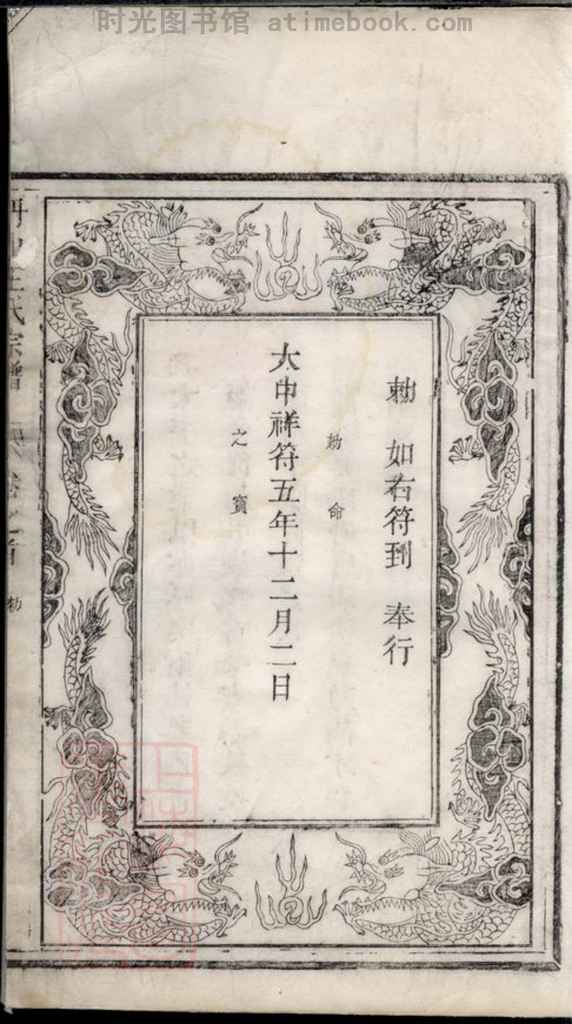 时光图书馆 atimebook.com
勅 如右符到 奉行
勅命
大中祥符五年十二月二日
之寳
王氏宗譜
卷之首
勅